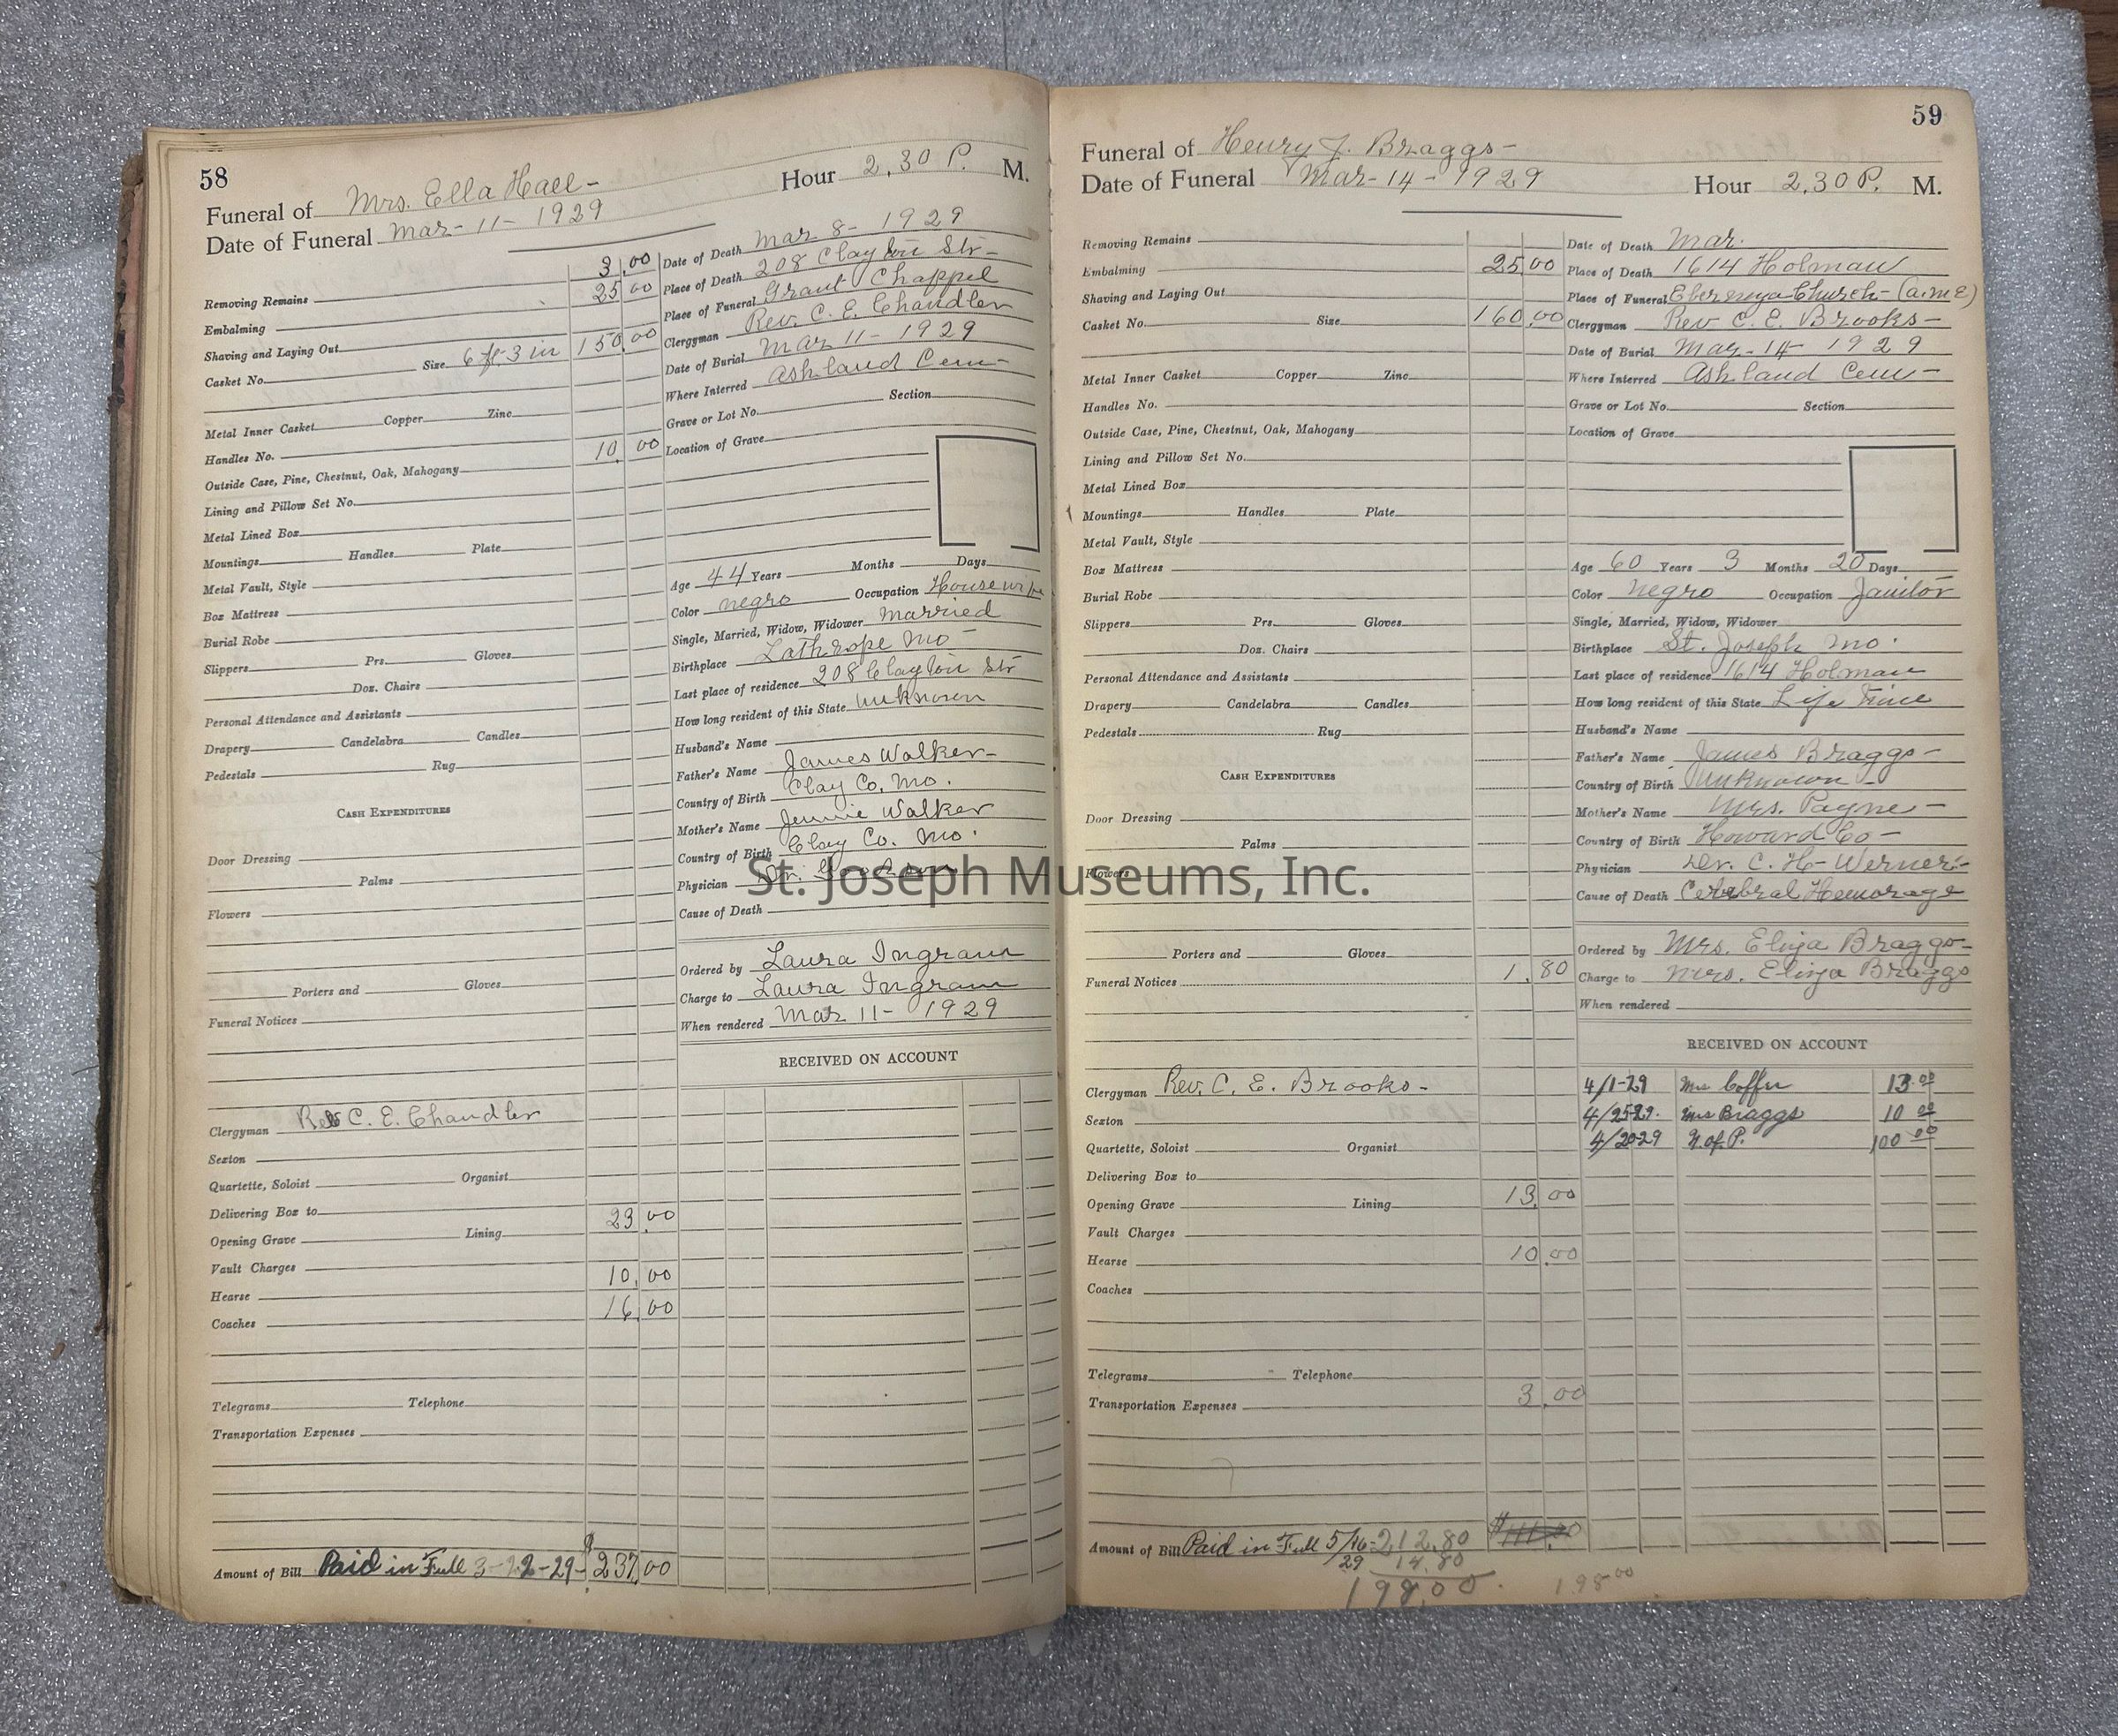 58
Funeral of Mrs. Ella Hall- Hour 2.30 P. M.
Date of Funeral Mar-11-1929
Removing Remains 3.00
Embalming 25.00
Shaving and Laying Out
Casket No. Size 6 ft-3 in 150.00
Metal Inner Casket Copper Zinc
Handles No.
Outside Case, Pine, Chestnut, Oak, Mahogany 10.00
Lining and Pillow Set No.
Metal Lined Box
Mountings Handles Plate
Metal Vault, Style
Box Mattress
Burial Robe
Slippers Prs. Gloves
Doz. Chairs
Personal Attendance and Assistants
Drapery Candelabra Candles
Pedestals Rug
CASH EXPENDITURES
Door Dressing
Palms
Flowers
Porters and Gloves
Funeral Notices
Clergyman Rev C. E. Chandler
Sexton
Quartette, Soloist Organist
Delivering Box to
Opening Grave Lining 23.00
Vault Charges
Hearse 10.00
Coaches 16.00
Telegrams Telephone
Transportation Expenses
Amount of Bill Paid in Full 3-22-29- $237.00
Date of Death Mar 8-1929
Place of Death 208 Clayton Str-
Place of Funeral Grant Chappel
Clergyman Rev. C. E. Chandler
Date of Burial Mar 11-1929
Where Interred Ashland Cem-
Grave or Lot No. Section
Location of Grave
Age 44 Years Months Days
Color negro Occupation Housewife
Single, Married, Widow, Widower Married
Birthplace Lathrope Mo-
Last place of residence 208 Clayton Str
How long resident of this State unknown
Husband's Name
Father's Name James Walker-
Country of Birth Clay Co. Mo.
Mother's Name Jennie Walker
Country of Birth Clay Co. Mo.
Physician Dr.
Cause of Death
Ordered by Laura Ingram
Charge to Laura Ingram
When rendered Mar 11-1929
RECEIVED ON ACCOUNT
59
Funeral of Henry J. Braggs-
Date of Funeral Mar-14-1929 Hour 2.30 P. M.
Removing Remains
Embalming 25.00
Shaving and Laying Out
Casket No. Size 160.00
Metal Inner Casket Copper Zinc
Handles No.
Outside Case, Pine, Chestnut, Oak, Mahogany
Lining and Pillow Set No.
Metal Lined Box
Mountings Handles Plate
Metal Vault, Style
Box Mattress
Burial Robe
Slippers Prs. Gloves
Doz. Chairs
Personal Attendance and Assistants
Drapery Candelabra Candles
Pedestals Rug
CASH EXPENDITURES
Door Dressing
Palms
Flowers
Porters and Gloves
Funeral Notices 1.80
Clergyman Rev. C. E. Brooks-
Sexton
Quartette, Soloist Organist
Delivering Box to
Opening Grave Lining 13.00
Vault Charges
Hearse 10.00
Coaches
Telegrams Telephone
Transportation Expenses 3.00
Amount of Bill Paid in Full 5/16-29 212.80
14.80
198.00 198.00
Date of Death Mar.
Place of Death 1614 Holman
Place of Funeral Church-(a.m.E)
Clergyman Rev C. E. Brooks-
Date of Burial Mar-14-1929
Where Interred Ashland Cem-
Grave or Lot No. Section
Location of Grave
Age 60 Years 3 Months 20 Days
Color Negro Occupation Janitor
Single, Married, Widow, Widower
Birthplace St. Joseph Mo.
Last place of residence 1614 Holman
How long resident of this State Life Time
Husband's Name
Father's Name James Braggs-
Country of Birth Unknown-
Mother's Name Mrs. Payne-
Country of Birth Howard Co-
Physician Dr. C. H. Werner-
Cause of Death Cerebral Hemorage
Ordered by Mrs. Eliza Braggs-
Charge to Mrs. Eliza Braggs
When rendered
RECEIVED ON ACCOUNT
4/1-29 Mrs Coffer 13.00
4/25-29. Mrs Braggs 10.00
4/20-29 K. of P. 100.00
St. Joseph Museums, Inc.